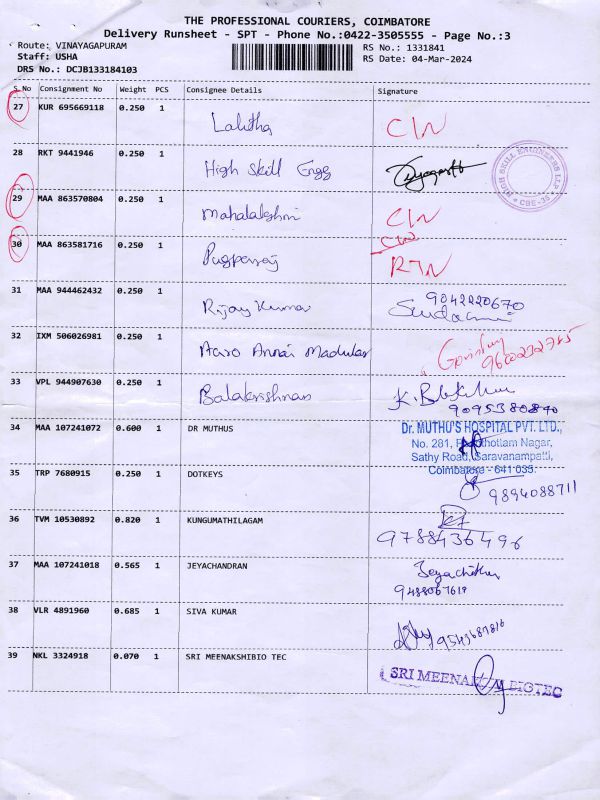 THE PROFESSIONAL COURIERS, COIMBATORE
Delivery Runsheet - SPT - Phone No.:0422-3505555 - Page No.:3
Route: VINAYAGAPURAM RS No.: 1331841
Staff: USHA RS Date: 04-Mar-2024
DRS No.: DCJB133184103
S No Consignment No Weight PCS Consignee Details Signature
27 KUR 695669118 0.250 1 Lalitha C/N
28 RKT 9441946 0.250 1 High Skill Engg
HIGH SKILL ENGINEERS LLP
CBE-35
29 MAA 863570804 0.250 1 Mahalakshmi C/N
30 MAA 863581716 0.250 1 C/N
RTN
31 MAA 944462432 0.250 1 Rijay Kumar 9042220670
32 IXM 506026981 0.250 1 Annai
33 VPL 944907630 0.250 1 Balakrishnan
9095380840
34 MAA 107241072 0.600 1 DR MUTHUS Dr. MUTHU'S HOSPITAL PVT. LTD.,
No. 281, Nagar,
Sathy Road, Saravanampatti,
Coimbatore - 641 035.
35 TRP 7680915 0.250 1 DOTKEYS
9894088711
36 TVM 10530892 0.820 1 KUNGUMATHILAGAM
9788436496
37 MAA 107241018 0.565 1 JEYACHANDRAN
9488067619
38 VLR 4891960 0.685 1 SIVA KUMAR
39 NKL 3324918 0.070 1 SRI MEENAKSHIBIO TEC SRI BIOTEC